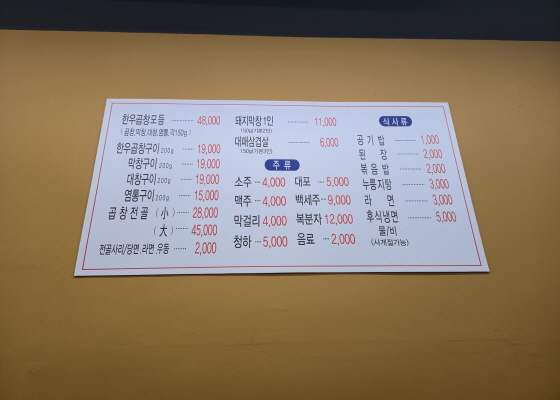 한우곱창모듬 ········ 48,000
(곱창,막창,대창,염통,각150g)
한우곱창구이 200g ···· 19,000
막창구이 200g ···· 19,000
대창구이 200g ···· 19,000
염통구이 200g ···· 15,000
곱창전골 (小) ···· 28,000
(大) ···· 45,000
전골사리/당면.라면.우동 ···· 2,000
돼지막창1인 ······ 11,000
대패삼겹살 ······ 6,000
주 류
소주 ··· 4,000
맥주 ··· 4,000
막걸리 4,000
청하 ··· 5,000
대포 ··· 5,000
백세주 ··· 9,000
복분자 12,000
음료 ··· 2,000
식 사 류
공 기 밥 ······ 1,000
된 장 ······ 2,000
볶 음 밥 ······ 2,000
누룽지탕 ······ 3,000
라 면 ······ 3,000
후식냉면 ······ 5,000
물/비
(사계절가능)